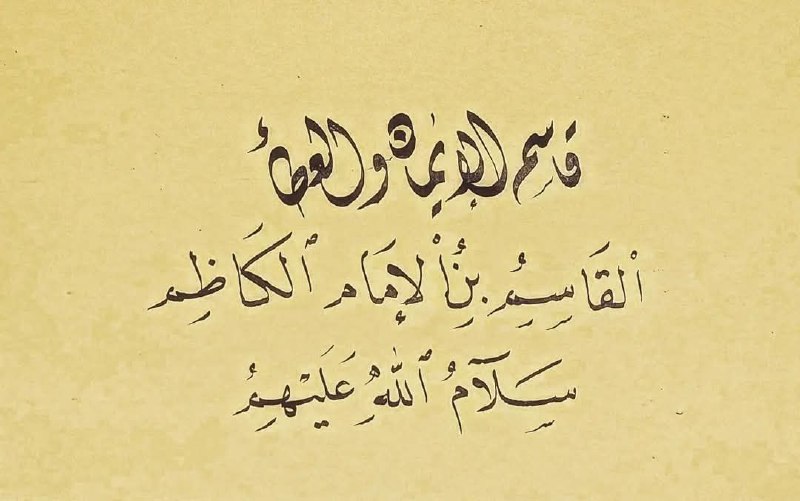 قاسم الإيمان والعطاء
ٱلقَاسِمِ بنُ ٱلإمَام ٱلكَاظِم
سَلَامُ ٱللهِ عَلَيْهِمُ